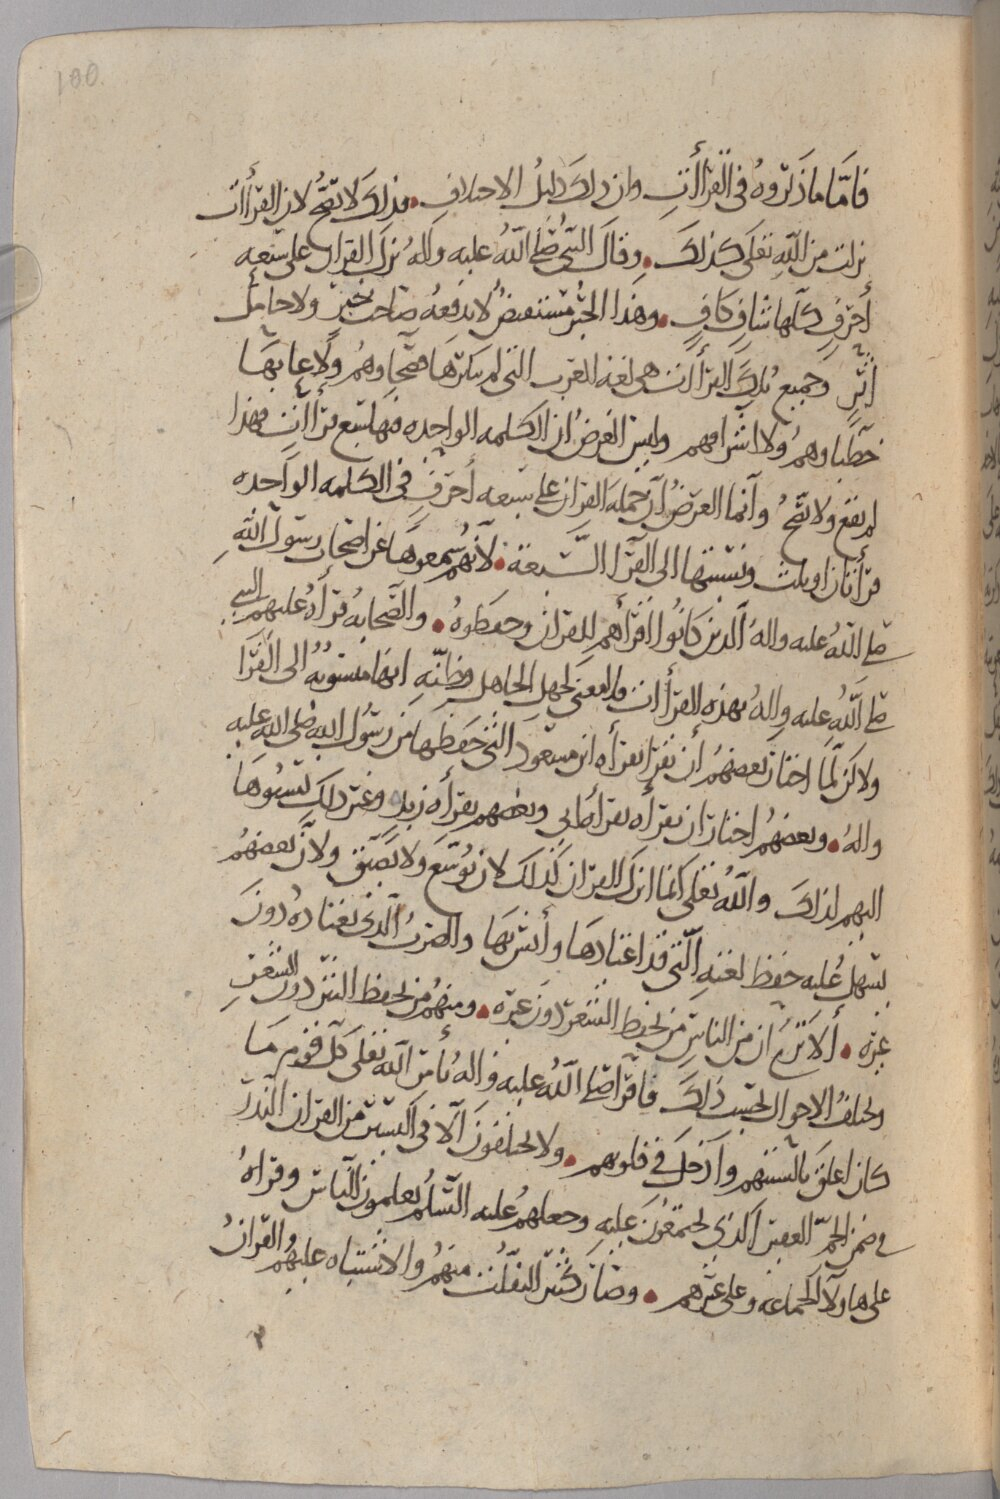 100
فامّا ما ذكروه في القراأات وان ذلك دليل الاختلاف. فذلك لا يصحّ لان القرأات
نزلت من اللّه تعلى كذلك. وقال النبي صلى اللّه عليه واله نزل القران على سبعه
أحرف كلها شاف كاف. وهذا الخبر مستفيض لا يدفعه صاحب خبر ولا حامل
أثر وجميع تلك القرأات هي لغه العرب التي لم ينكرها فصحاوهم ولا عابها
خطباوهم ولا اشرافهم وليس الغرض ان الكلمه الواحده فيها سبع قراأات فهذا
لم يقع ولا يصحّ وانما الغرض أن جمله القران على سبعه أحرف في الكلمه الواحده
قرأتان او ثلث ونسبتها الى القرّا السّبعة. لأنهم سمعوها عن اصحاب رسول اللّه
صلى اللّه عليه واله الّذين كانوا اقرأهم للقران وحفظوه. والصحابه قرأه عليهم النبي
صلى اللّه عليه واله بهذه القرأات فلا معنى لجهل الجاهل وظنّه انها منسوبه الى القرّا
ولاكن لمّا اختار بعضهم أن يقرا بقرأه ابن مسعود التي حفظها من رسول اللّه صلى اللّه عليه
واله. وبعضهم اختار ان يقرأه بقرأه ابي وبعضهم بقرأه زيد وغير ذلك نسبوها
اليهم لذلك واللّه تعلى انما انزل القران كذلك لان يوسّع ولا يضيّق ولانّ بعضهم
يسهل عليه حفظ لغته الّتي قد اعتادها وأنس بها والضرب الّذي يعتاده دون
غيره. ألا ترى ان من الناس من يحفظ الشعر دون غيره. ومنهم من يحفظ النثر دون الشعر
وتختلف الاحوال بحسب ذلك فاقرا صلى اللّه عليه واله بأمر اللّه تعلى كلّ قوم ما
كان اعلق بالسنتهم وأدخل في قلوبهم. ولا يختلفون الّا في اليسير من القران النّزر
في ضمن الجمّ الغفير الذي يجمعون عليه وجعلهم عليه السّلم يعلمون النّاس وقراه
على هاولا الجماعه وعلى غيرهم. وصار كثير النقلات منهم والاشتباه عليهم والقران